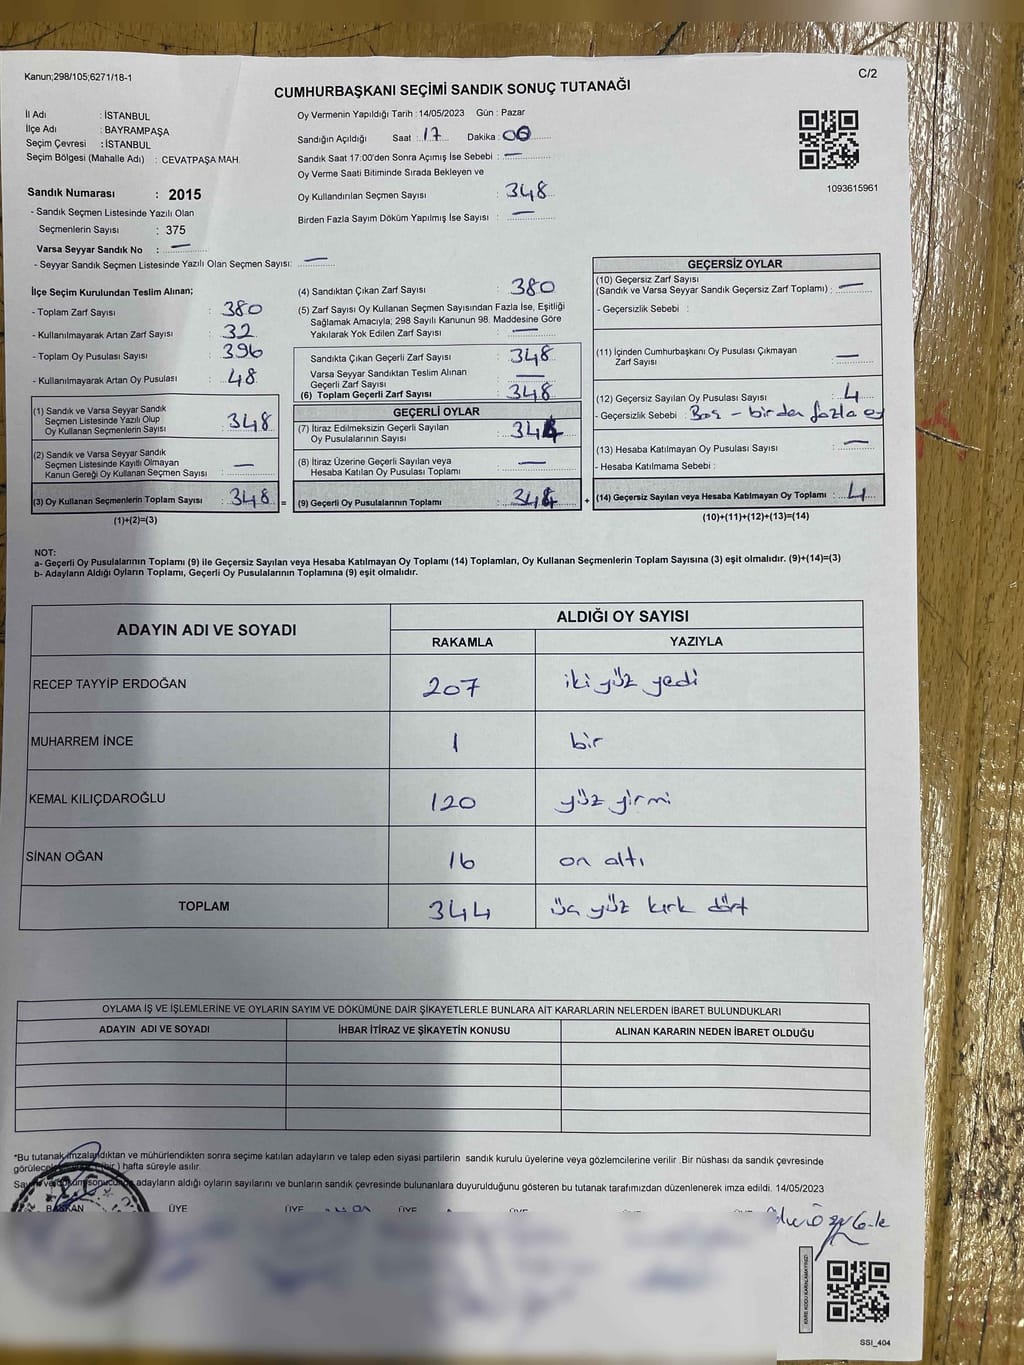 Kanun;298/105;6271/18-1
C/2
CUMHURBAŞKANI SEÇİMİ SANDIK SONUÇ TUTANAĞI
İl Adı : İSTANBUL
İlçe Adı : BAYRAMPAŞA
Seçim Çevresi : İSTANBUL
Seçim Bölgesi (Mahalle Adı) : CEVATPAŞA MAH.
Sandık Numarası : 2015
- Sandık Seçmen Listesinde Yazılı Olan
Seçmenlerin Sayısı : 375
Varsa Seyyar Sandık No : —
- Seyyar Sandık Seçmen Listesinde Yazılı Olan Seçmen Sayısı: —
Oy Vermenin Yapıldığı Tarih : 14/05/2023 Gün : Pazar
Sandığın Açıldığı Saat : 17 Dakika : 00
Sandık Saat 17:00'den Sonra Açımış İse Sebebi : —
Oy Verme Saati Bitiminde Sırada Bekleyen ve
Oy Kullandırılan Seçmen Sayısı : 348
Birden Fazla Sayım Döküm Yapılmış İse Sayısı : —
1093615961
İlçe Seçim Kurulundan Teslim Alınan;
- Toplam Zarf Sayısı : 380
- Kullanılmayarak Artan Zarf Sayısı : 32
- Toplam Oy Pusulası Sayısı : 396
- Kullanılmayarak Artan Oy Pusulası : 48
(1) Sandık ve Varsa Seyyar Sandık
Seçmen Listesinde Yazılı Olup
Oy Kullanan Seçmenlerin Sayısı : 348
(2) Sandık ve Varsa Seyyar Sandık
Seçmen Listesinde Kayıtlı Olmayan
Kanun Gereği Oy Kullanan Seçmen Sayısı : —
(3) Oy Kullanan Seçmenlerin Toplam Sayısı : 348 =
(1)+(2)=(3)
(4) Sandıktan Çıkan Zarf Sayısı : 380
(5) Zarf Sayısı Oy Kullanan Seçmen Sayısından Fazla İse, Eşitliği
Sağlamak Amacıyla; 298 Sayılı Kanunun 98. Maddesine Göre
Yakılarak Yok Edilen Zarf Sayısı : —
Sandıkta Çıkan Geçerli Zarf Sayısı : 348
Varsa Seyyar Sandıktan Teslim Alınan
Geçerli Zarf Sayısı : —
(6) Toplam Geçerli Zarf Sayısı : 348
GEÇERLİ OYLAR
(7) İtiraz Edilmeksizin Geçerli Sayılan
Oy Pusulalarının Sayısı : 344
(8) İtiraz Üzerine Geçerli Sayılan veya
Hesaba Katılan Oy Pusulası Toplamı : —
(9) Geçerli Oy Pusulalarının Toplamı : 344 +
GEÇERSİZ OYLAR
(10) Geçersiz Zarf Sayısı
(Sandık ve Varsa Seyyar Sandık Geçersiz Zarf Toplamı) : —
- Geçersizlik Sebebi :
(11) İçinden Cumhurbaşkanı Oy Pusulası Çıkmayan
Zarf Sayısı : —
(12) Geçersiz Sayılan Oy Pusulası Sayısı : 4
- Geçersizlik Sebebi : Boş - birden fazla
(13) Hesaba Katılmayan Oy Pusulası Sayısı : —
- Hesaba Katılmama Sebebi :
(14) Geçersiz Sayılan veya Hesaba Katılmayan Oy Toplamı : 4
(10)+(11)+(12)+(13)=(14)
NOT:
a- Geçerli Oy Pusulalarının Toplamı (9) ile Geçersiz Sayılan veya Hesaba Katılmayan Oy Toplamı (14) Toplamları, Oy Kullanan Seçmenlerin Toplam Sayısına (3) eşit olmalıdır. (9)+(14)=(3)
b- Adayların Aldığı Oyların Toplamı, Geçerli Oy Pusulalarının Toplamına (9) eşit olmalıdır.
ADAYIN ADI VE SOYADI
ALDIĞI OY SAYISI
RAKAMLA YAZIYLA
RECEP TAYYİP ERDOĞAN 207 iki yüz yedi
MUHARREM İNCE 1 bir
KEMAL KILIÇDAROĞLU 120 yüz yirmi
SİNAN OĞAN 16 on altı
TOPLAM 344 üç yüz kırk dört
OYLAMA İŞ VE İŞLEMLERİNE VE OYLARIN SAYIM VE DÖKÜMÜNE DAİR ŞİKAYETLERLE BUNLARA AİT KARARLARIN NELERDEN İBARET BULUNDUKLARI
ADAYIN ADI VE SOYADI İHBAR İTİRAZ VE ŞİKAYETİN KONUSU ALINAN KARARIN NEDEN İBARET OLDUĞU
*Bu tutanak imzalandıktan ve mühürlendikten sonra seçime katılan adayların ve talep eden siyasi partilerin sandık kurulu üyelerine veya gözlemcilerine verilir .Bir nüshası da sandık çevresinde
hafta süreyle asılır.
adayların aldığı oyların sayılarını ve bunların sandık çevresinde bulunanlara duyurulduğunu gösteren bu tutanak tarafımızdan düzenlenerek imza edildi. 14/05/2023
BAŞKAN ÜYE ÜYE ÜYE ÜYE
SSI_404